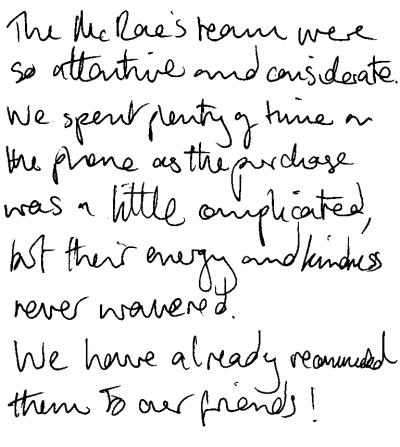 The McRae's team were
so attentive and considerate.
We spent plenty of time on
the phone as the purchase
was a little complicated,
but their energy and kindness
never wavered.
We have already recommended
them to our friends!